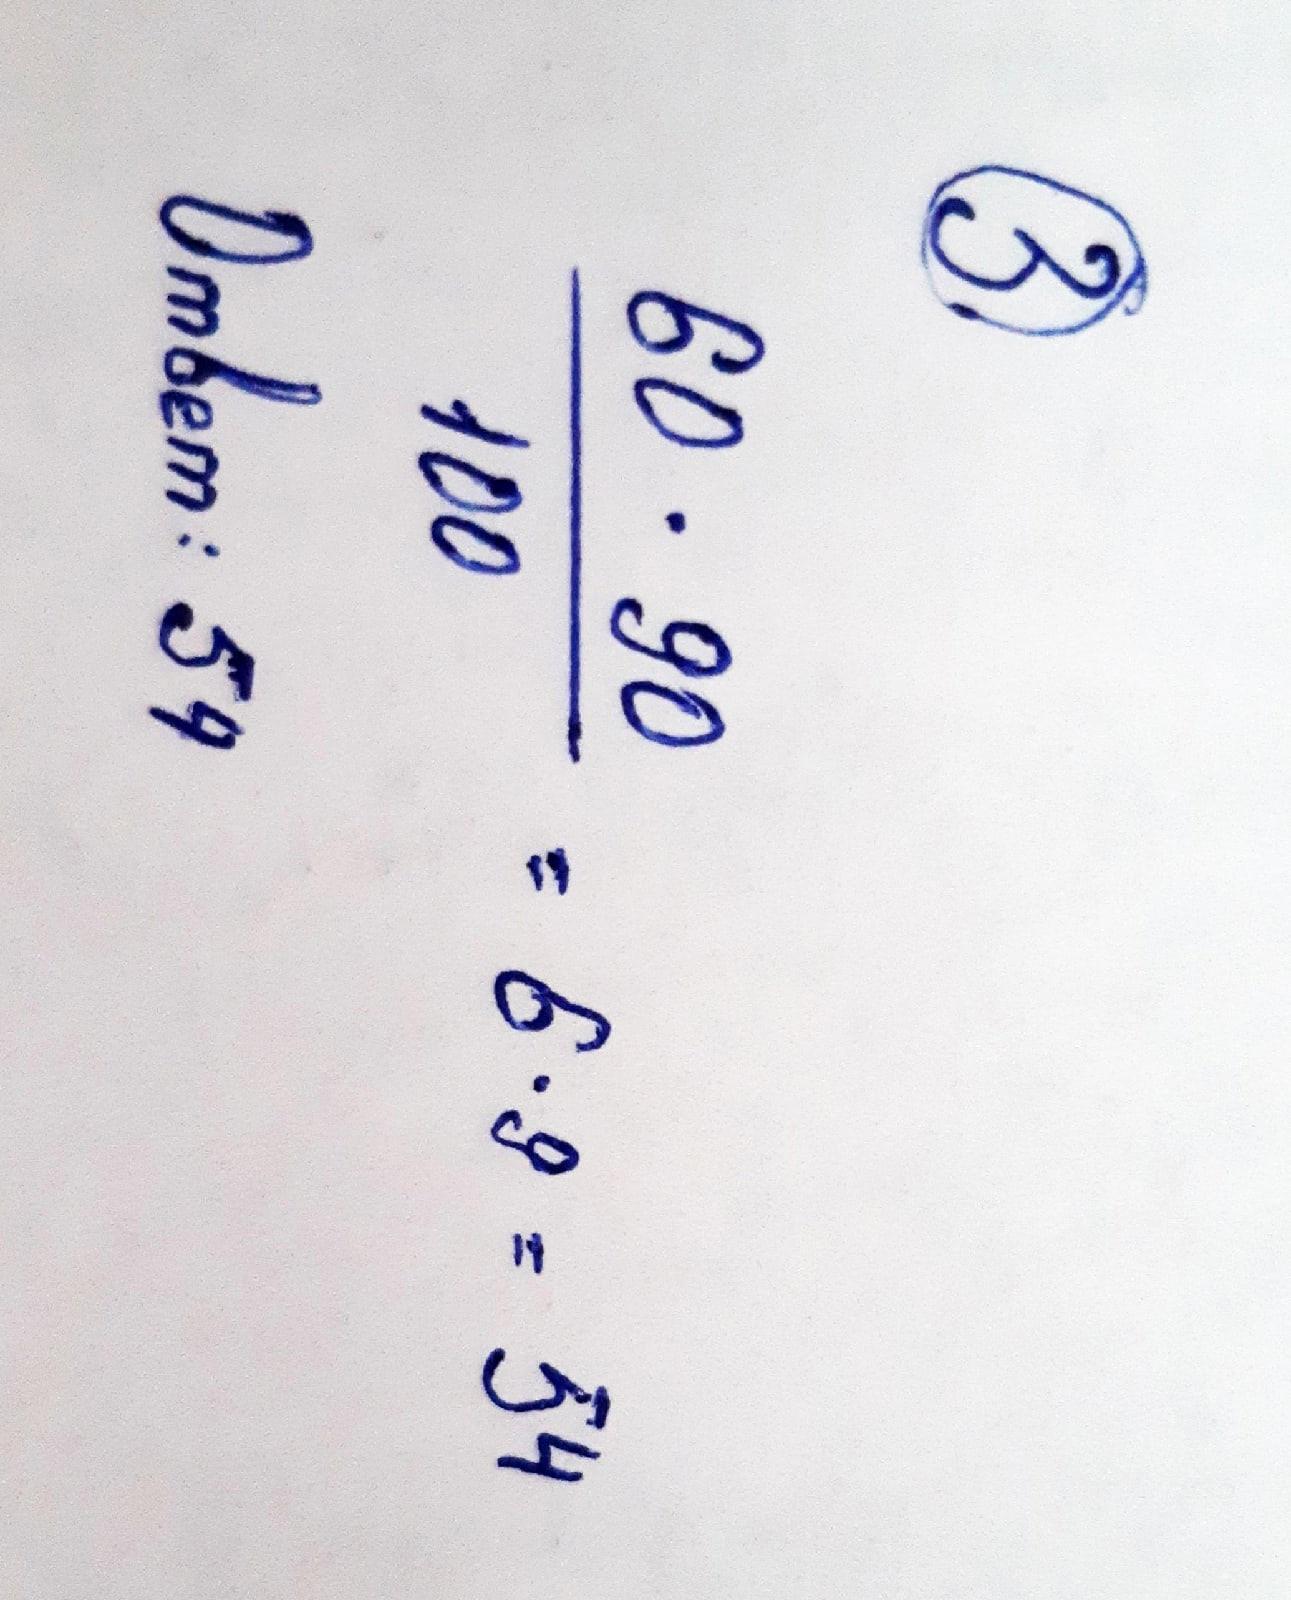 3
60 · 90
100
= 6 · 9 = 54
Ответ: 54